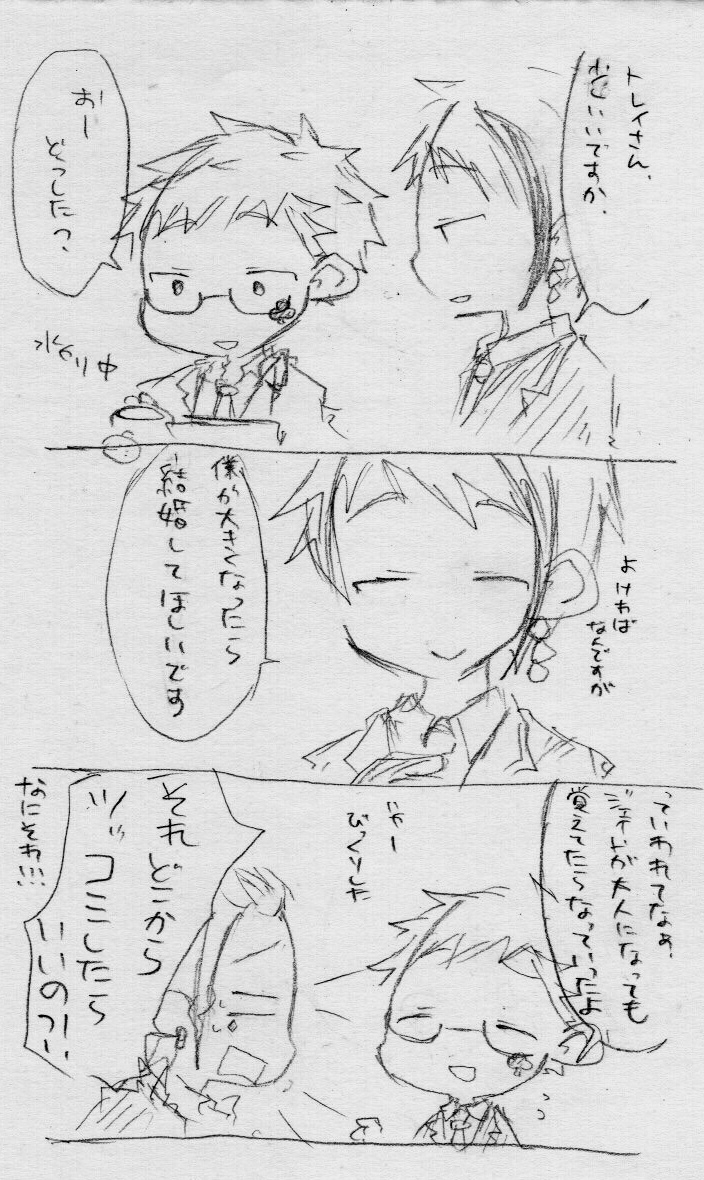 トレイさん、
少しいいですか。
おー
どうした？
水やり中
よければ
なんですが
僕が大きくなったら
結婚してほしいです
っていわれてなぁ、
ジェイドが大人になっても
覚えてたらなっていったよ
いやー
びっくりした
それどこから
ツッコミしたら
いいのっ!!
なにそれ!!!